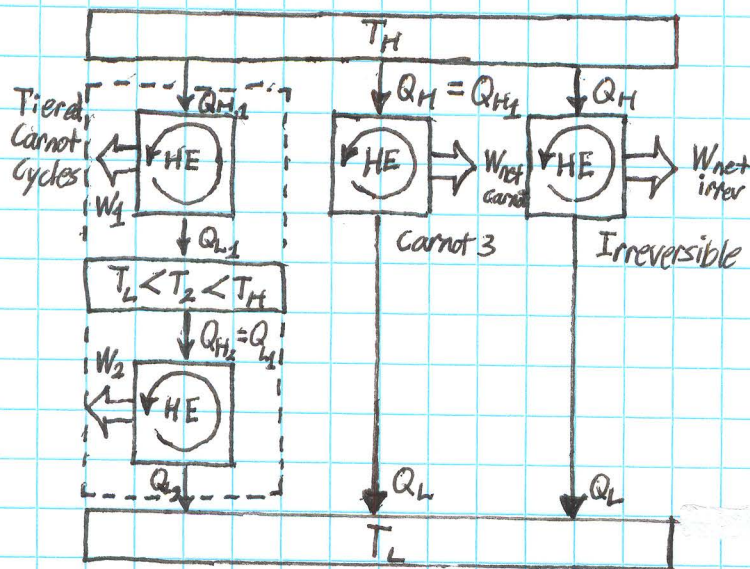 T_H
Tiered
Carnot
Cycles
Q_H1
HE
W_1
Q_L1
T_L < T_2 < T_H
Q_H2 = Q_L1
W_2
HE
Q_L2
Q_H = Q_H1
HE
W_net
carnot
Carnot 3
Q_L
Q_H
HE
W_net
irrev
Irreversible
Q_L
T_L